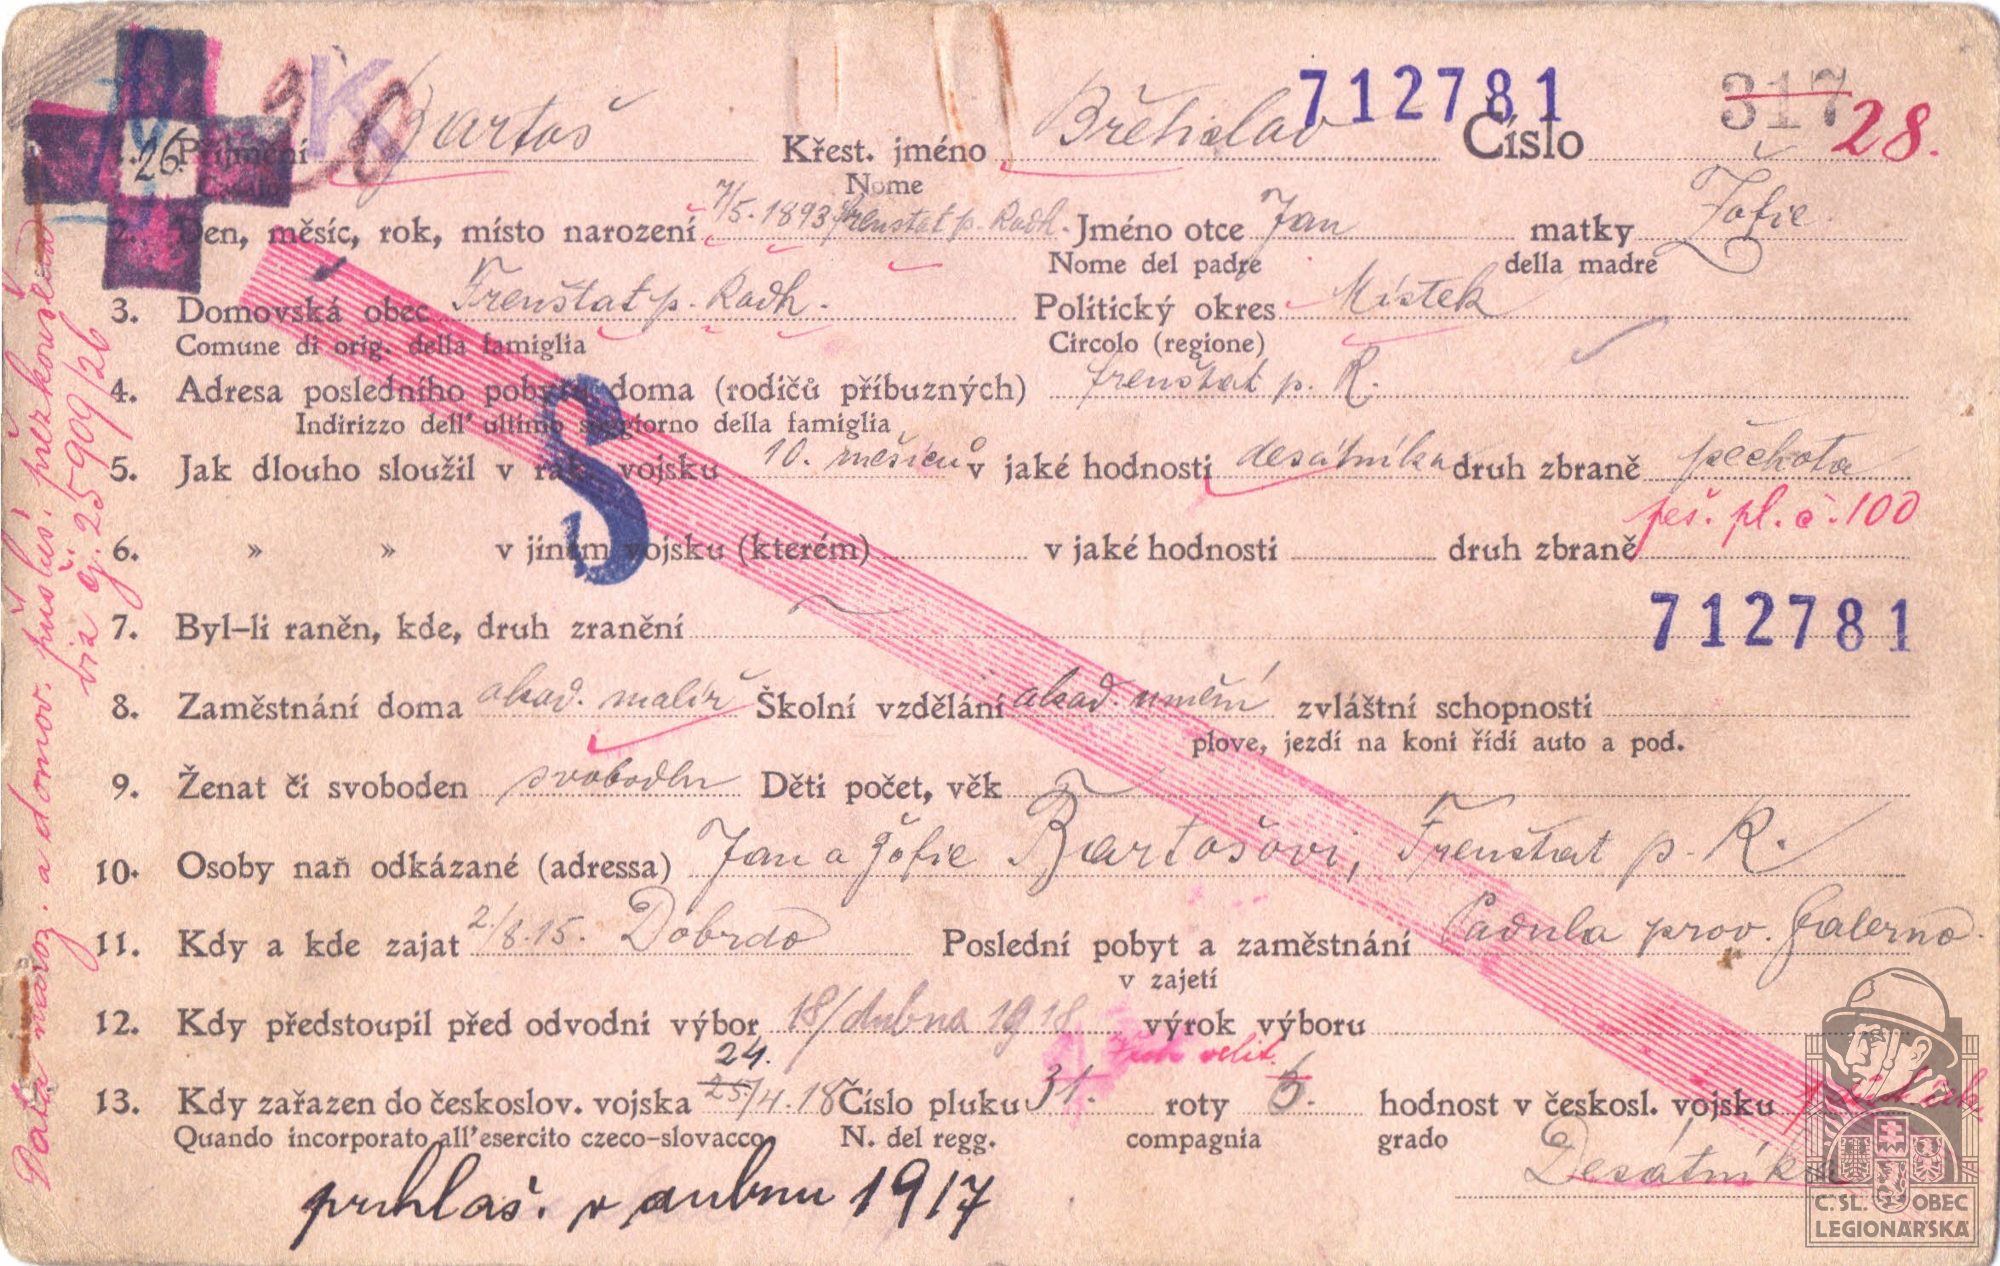 712781 317 28.
26. K
1. Příjmení Bartoš Křest. jméno Břetislav Číslo
Casato Nome
2. Den, měsíc, rok, místo narození 7/5. 1893 Frenštat p. Radh. Jméno otce Jan matky Žofie.
Nome del padre della madre
3. Domovská obec Frenštat p. Radh. Politický okres Místek
Comune di orig. della famiglia Circolo (regione)
4. Adresa posledního pobytu doma (rodičů příbuzných) Frenštat p. R.
Indirizzo dell' ultimo soggiorno della famiglia
5. Jak dlouho sloužil v rak. vojsku 10. měsíců v jaké hodnosti desátníka druh zbraně pěchota
6. » » v jiném vojsku (kterém) v jaké hodnosti druh zbraně peš. pl. č. 100
S
712781
7. Byl-li raněn, kde, druh zranění
8. Zaměstnání doma akad. malíř Školní vzdělání akad. umění zvláštní schopnosti
plove, jezdí na koni řídí auto a pod.
9. Ženat či svoboden svoboden Děti počet, věk
10. Osoby naň odkázané (adressa) Jan a Žofie Bartošovi, Frenštat p. R.
11. Kdy a kde zajat 2./8. 15. Dobrdo Poslední pobyt a zaměstnání Padula prov. Salerno.
v zajetí
12. Kdy předstoupil před odvodní výbor 18/dubna 1918 výrok výboru
24. velit.
13. Kdy zařazen do českoslov. vojska 25/4. 18 Číslo pluku 31. roty 6. hodnost v českosl. vojsku
Quando incorporato all'esercito czeco-slovacco N. del regg. compagnia grado
Desátník
přihlaš. v dubnu 1917
Data naroz. a domov. přísluš. přezkoušena
viz čj. 25909/26
Č. SL. OBEC
LEGIONÁŘSKÁ